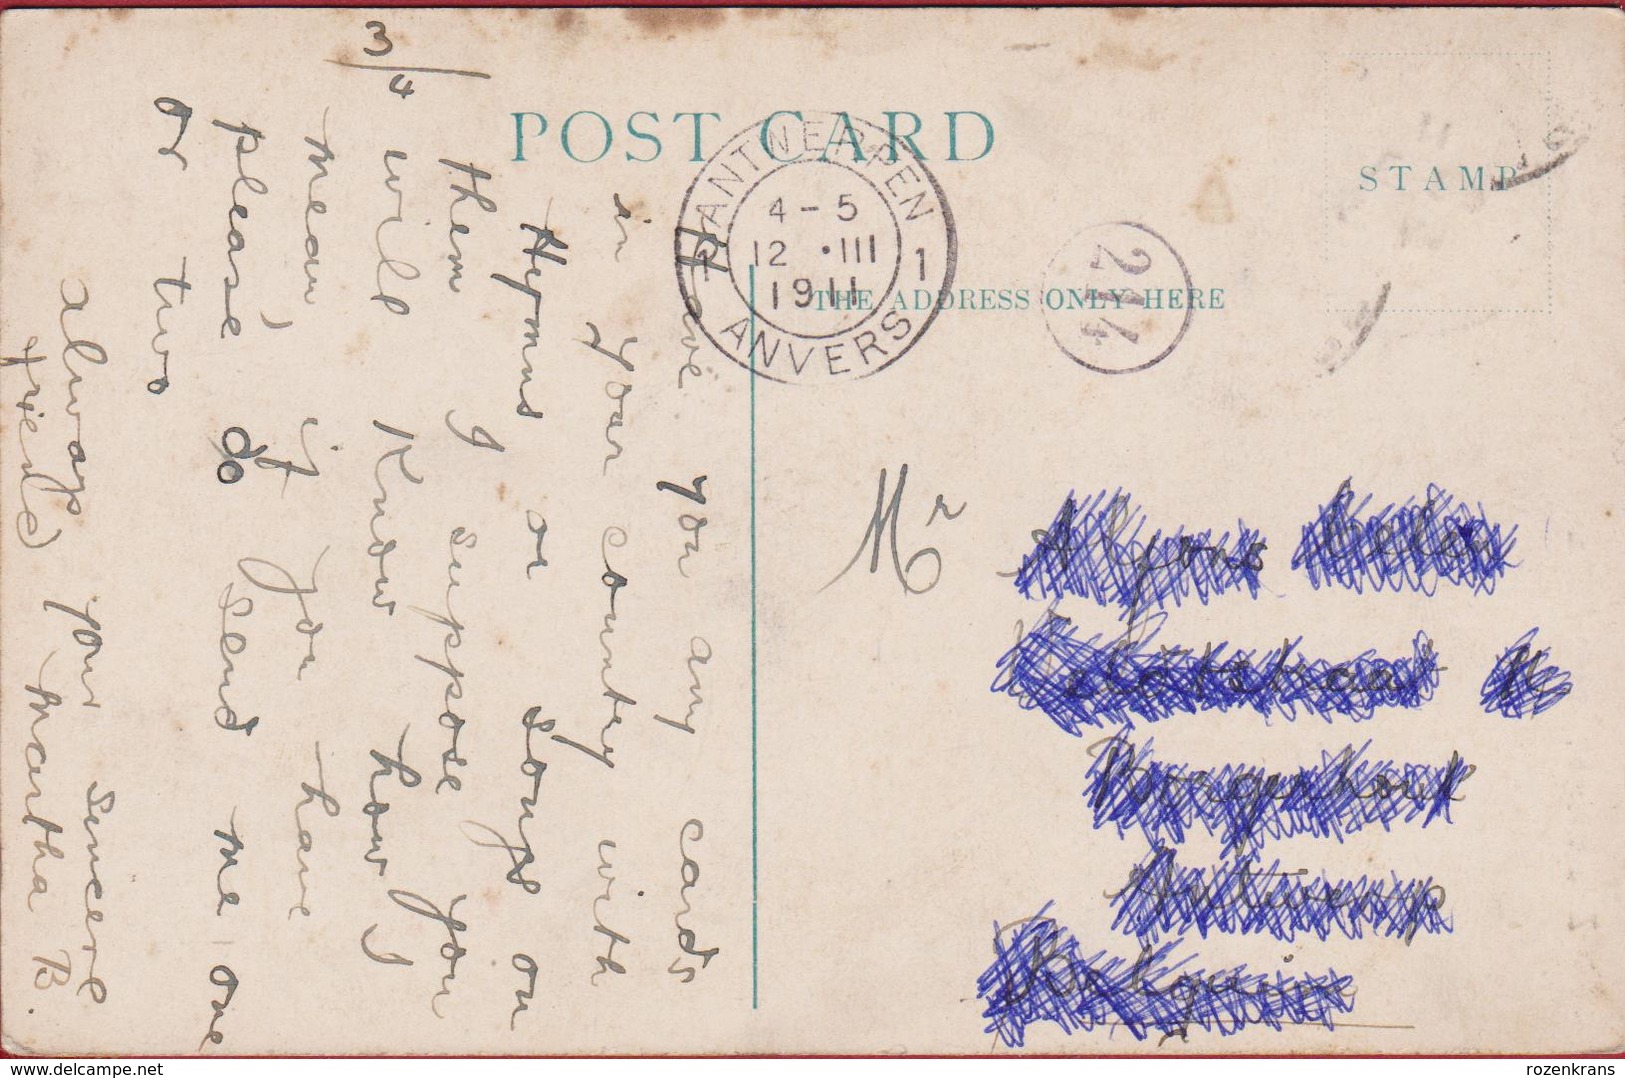 POST CARD
STAMP
THE ADDRESS ONLY HERE
ANTWERPEN
4-5
12 · III
1911
1 1
ANVERS
214
Have you any cards
in your country with
Hymns or songs on
them I suppose you
3/4 will Know how I
mean, if you have
please do send me one
or two
always your sincere
friend Martha B.
Mr Alfons
Borgerhout
Antwerp
Belguim
www.delcampe.net
rozenkrans